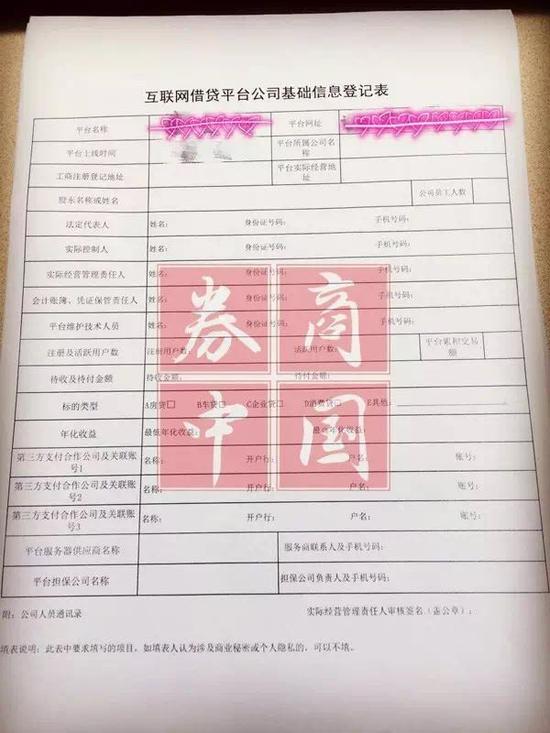 互联网借贷平台公司基础信息登记表
平台名称 平台网址
平台上线时间 平台所属公司名称
工商注册登记地址 平台实际经营地址
股东名称或姓名 公司员工人数
法定代表人 姓名： 身份证号码： 手机号码：
实际控制人 姓名： 身份证号码： 手机号码：
实际经营管理责任人 姓名： 身份证号码： 手机号码：
会计账簿、凭证保管责任人 姓名： 身份证号码： 手机号码：
平台维护技术人员 姓名： 身份证号码： 手机号码：
注册及活跃用户数 注册用户数： 活跃用户数： 平台累积交易额
待收及待付金额 待收金额： 待付金额：
标的类型 A房贷□ B车贷□ C企业贷□ D消费贷□ E其他：
年化收益 最低年化收益： 最高年化收益：
第三方支付合作公司及关联账号1 名称： 开户行： 户名： 账号：
第三方支付合作公司及关联账号2 名称： 开户行： 户名： 账号：
第三方支付合作公司及关联账号3 名称： 开户行： 户名： 账号：
平台服务器供应商名称 服务商联系人及手机号码：
平台担保公司名称 担保公司负责人及手机号码：
附：公司人员通讯录 实际经营管理责任人审核签名（盖公章）：
填表说明：此表中要求填写的项目，如填表人认为涉及商业秘密或个人隐私的，可以不填。
券商
中国